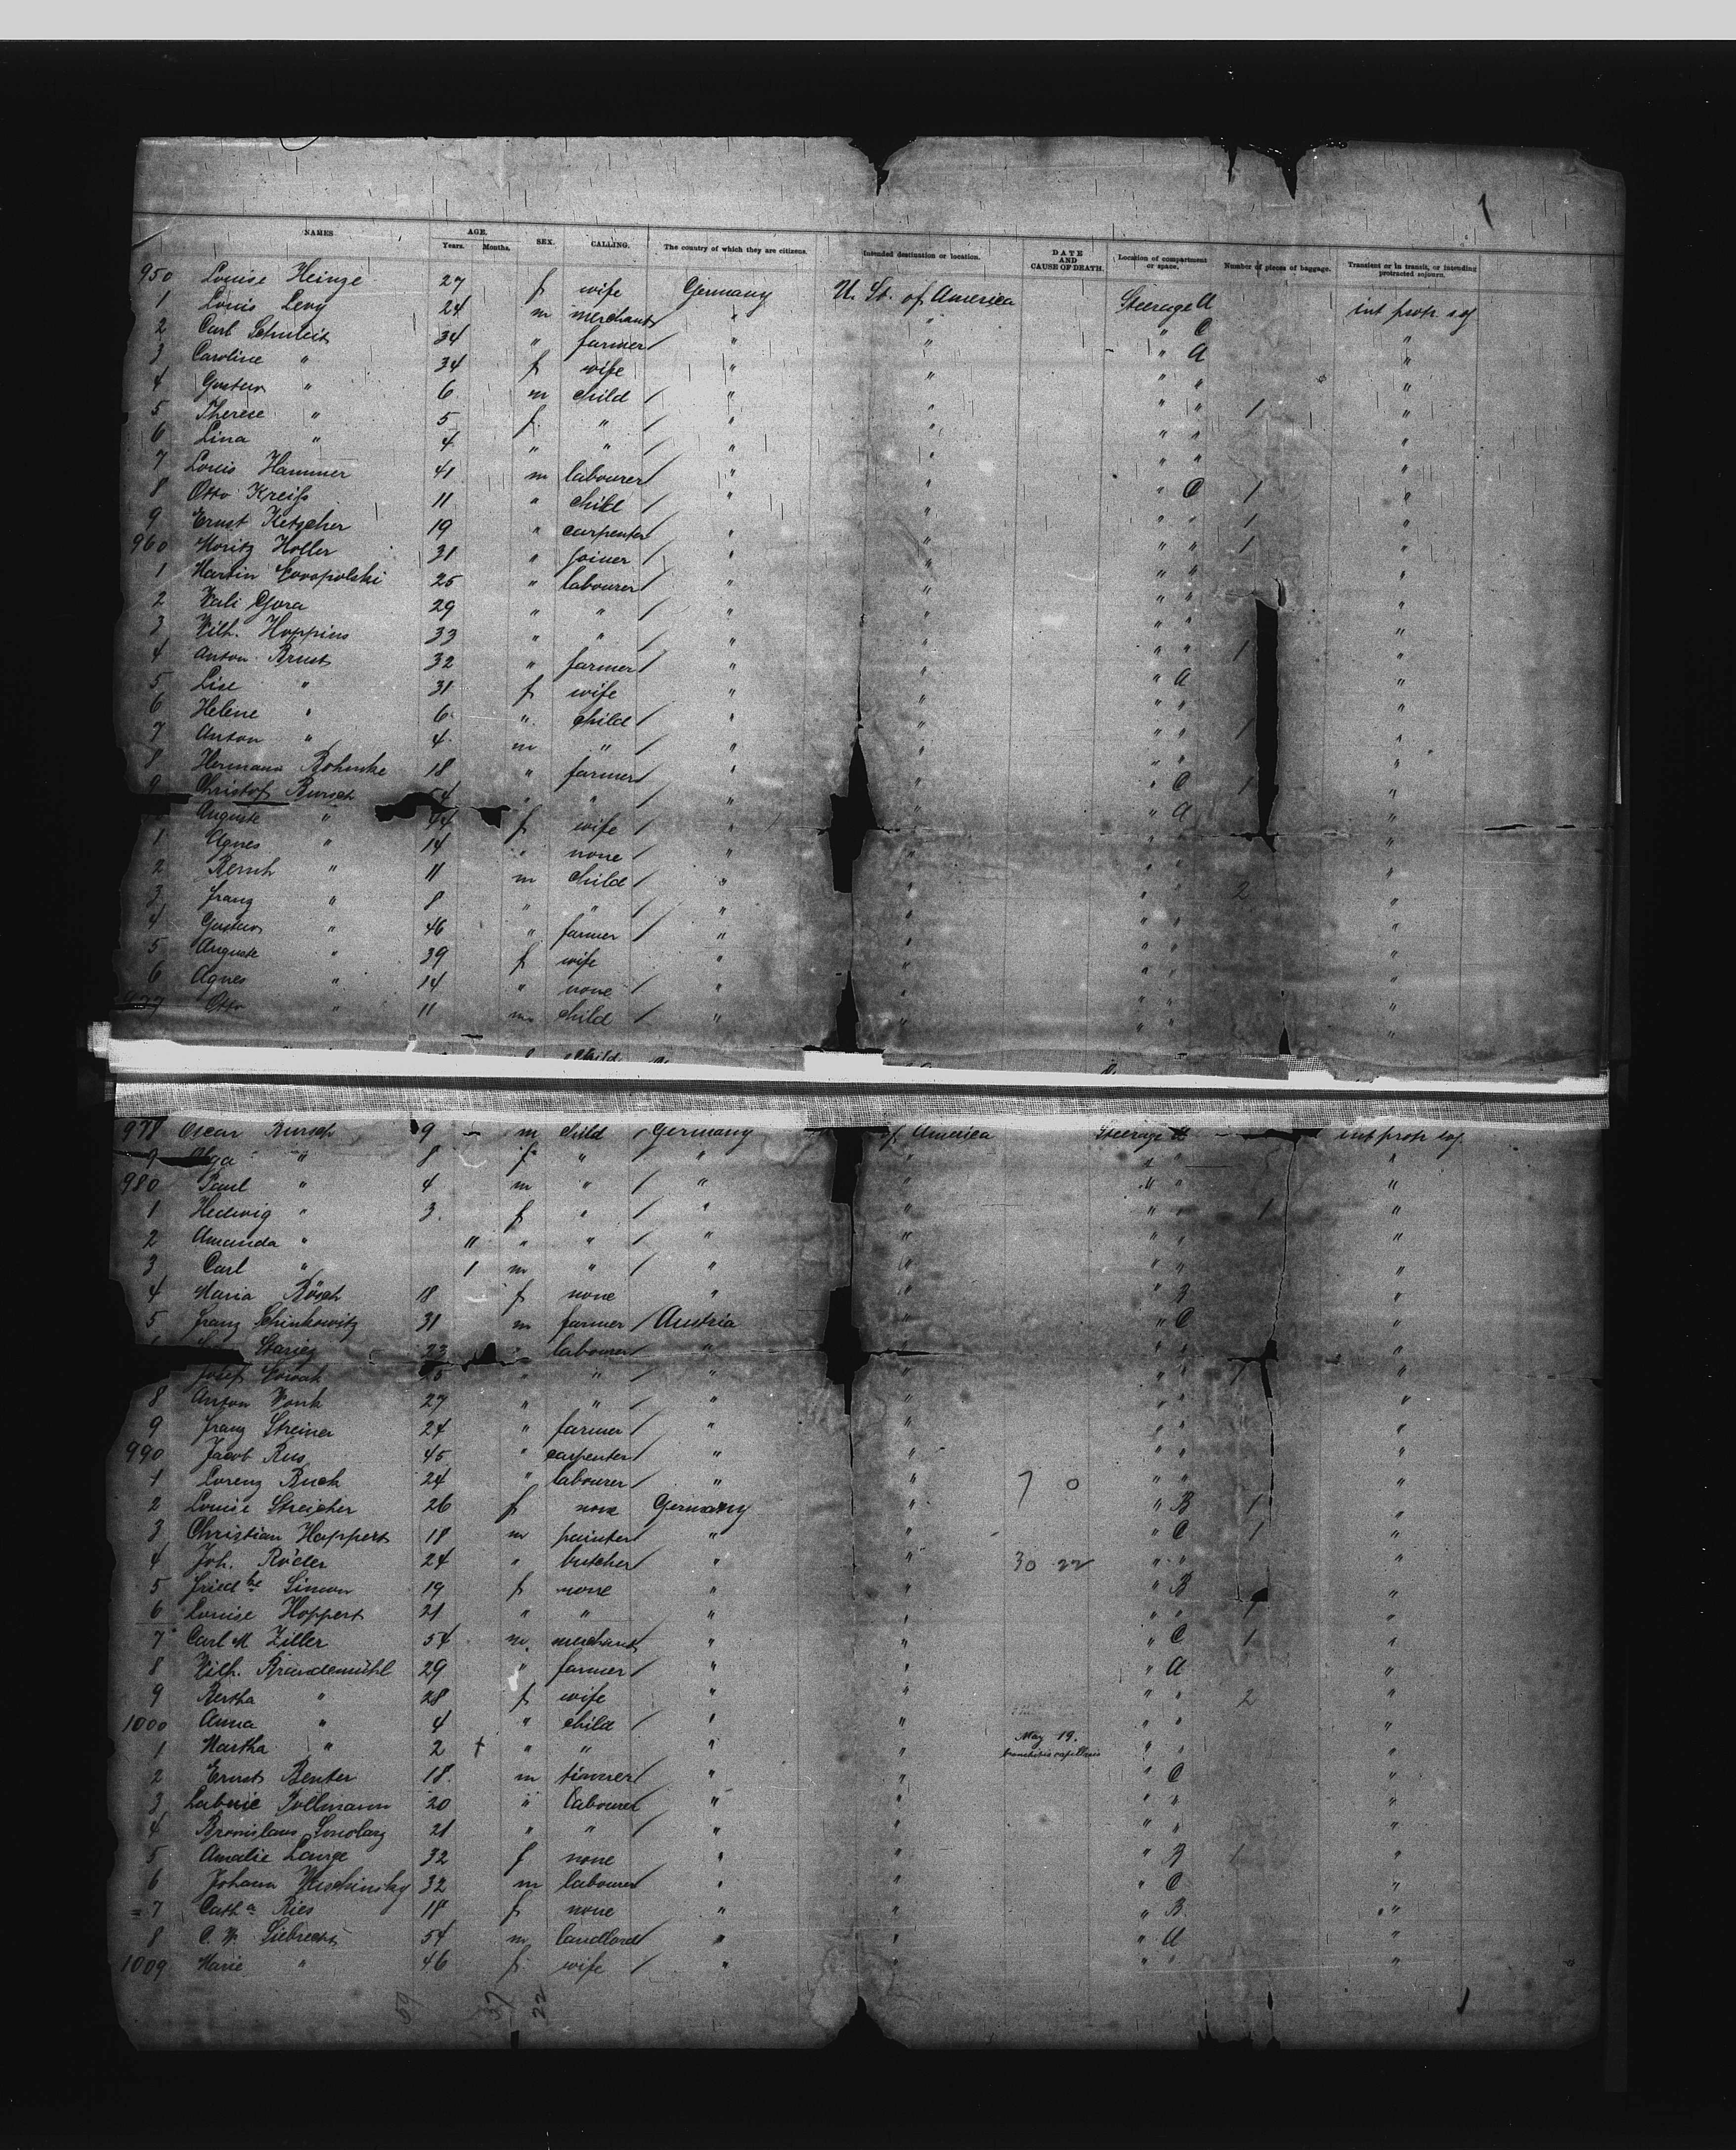 NAMES AGE. SEX. CALLING. The country of which they are citizens. Intended destination or location. DATE AND CAUSE OF DEATH. Location of compartment or space. Number of pieces of baggage. Transient or in transit, or intending protracted sojourn.
Years. Months.
950 Louise Heinze 27 f wife Germany U. St. of America Steerage A int protr soj
1 Louis Levy 24 m merchant " " " C "
2 Carl Schuleit 34 " farmer " " " A "
3 Caroline " 34 f wife " " " " "
4 Gustav " 6 m child " " " " 1 "
5 Therese " 5 f " " " " " "
6 Lina " 4 " " " " " " "
7 Louis Hammer 41 m labourer " " " C 1 "
8 Otto Kreiß 11 " child " " " " 1 "
9 Ernst Ketscher 19 " carpenter " " " " 1 "
960 Moritz Holler 31 " joiner " " " " "
1 Martin 25 " labourer " " " " "
2 Vali Gora 29 " " " " " " "
3 Wilh. Hoppins 33 " " " " " " 1 "
4 Anton Brust 32 " farmer " " " A "
5 Lise " 31 f wife " " " " "
6 Helene " 6 " child " " " " 1 "
7 Anton " 4 m " " " " " "
8 Hermann Bohmke 18 " farmer " " " C 1 "
9 Christof Bursch 54 " " " " " A "
Auguste " 44 f wife " " " " "
1 Agnes " 14 " none " " " " "
2 Bernh " 11 m child " " " " 2 "
3 Franz " 8 " " " " " " "
4 Gustav " 46 " farmer " " " " "
5 Auguste " 39 f wife " " " " "
6 Agnes " 14 " none " " " " "
977 Otto " 11 m child " " " " "
978 Oscar Bursch 9 m child Germany of America Steerage A int protr soj
9 Olga " 8 f " " " " " "
980 Paul " 4 m " " " " " "
1 Hedwig " 3 f " " " " " 1 "
2 Amanda " 11 " " " " " " "
3 Carl " 1 m " " " " " "
4 Maria Bösch 18 f none " " " B "
5 Franz Chinkowitz 31 m farmer Austria " " C "
Stariez 23 " labourer " " " " "
Josef Novak " " " " " " 1 "
8 Anton Vonk 27 " " " " " " "
9 Franz Streiner 24 " farmer " " " " "
990 Jacob Rus 45 " carpenter " " " " "
1 Lorenz Buch 24 " labourer " " 7 0 " " "
2 Louise Streicher 26 f none Germany " " B 1 "
3 Christian Hoppert 18 m painter " " " C 1 "
4 Joh. Röder 24 " butcher " " 30 22 " " "
5 Friedke Simon 19 f none " " " B "
6 Louise Hoppert 21 " " " " " " 1 "
7 Carl M Ziller 54 m merchant " " " C 1 "
8 Wilh. Brandemühl 29 " farmer " " " A "
9 Bertha " 28 f wife " " " " 2 "
1000 Anna " 4 " child " " " " "
1 Martha " 2 † " " " " May 19. bronchitis capillaris " " "
2 Ernst Benter 18 m tinner " " " C "
3 Pollmann 20 " labourer " " " " "
4 Bronislaus Smolarz 21 " " " " " " "
5 Amalie Lange 32 f none " " " B 1 "
6 Johann 32 m labourer " " " C "
7 Catha Ries 18 f none " " " B "
8 C. W. Siebrecht 54 m landlord " " " A "
1009 Marie " 46 f wife " " " " "
59 37 22